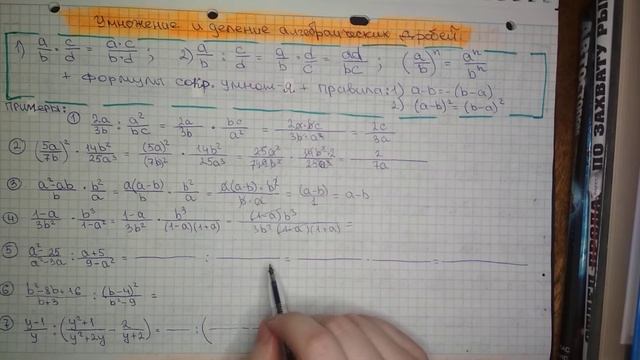 Умножение и деление алгебраических дробей.
1) a/b · c/d = a·c/b·d ; 2) a/b : c/d = a/b · d/c = ad/bc ; (a/b)ⁿ = aⁿ/bⁿ
+ формулы сокр. умнож-я + правила: 1) a-b=-(b-a)
2) (a-b)²=(b-a)²
Примеры:
① 2a/3b : a²/bc = 2a/3b · bc/a² = 2a·bc/3b·a² = 2c/3a
② (5a/7b)² · 14b²/25a³ = (5a)²/(7b)² · 14b²/25a³ = 2/7a
③ a²-ab/b · b²/a = a(a-b)/b · b²/a = a(a-b)·b²/b·a = (a-b)/1 = a-b
④ 1-a/3b² · b³/1-a² = 1-a/3b² · b³/(1-a)(1+a) = (1-a)b³/3b²(1-a)(1+a) =
⑤ a²-25/a²-3a : a+5/9-a² = : = · =
⑥ b²-8b+16/b+3 : (b-4)²/b²-9 =
⑦ y-1/y : (y²+1/y²+2y - 2/y+2) = : (
ПО ЗАХВАТУ РЫ